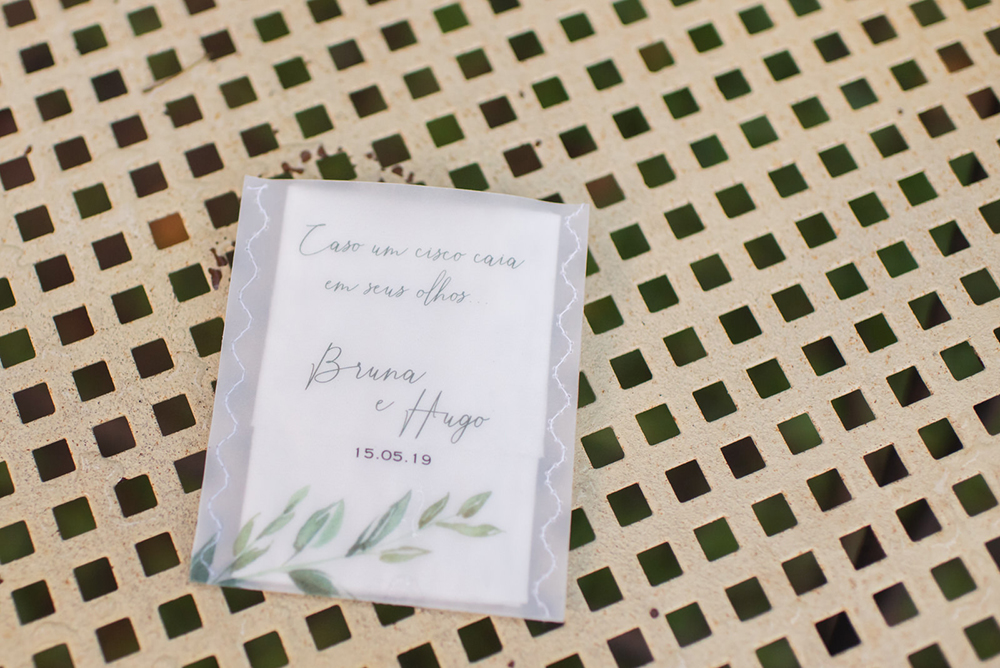 Caso um cisco caia
em seus olhos...
Bruna
e Hugo
15.05.19